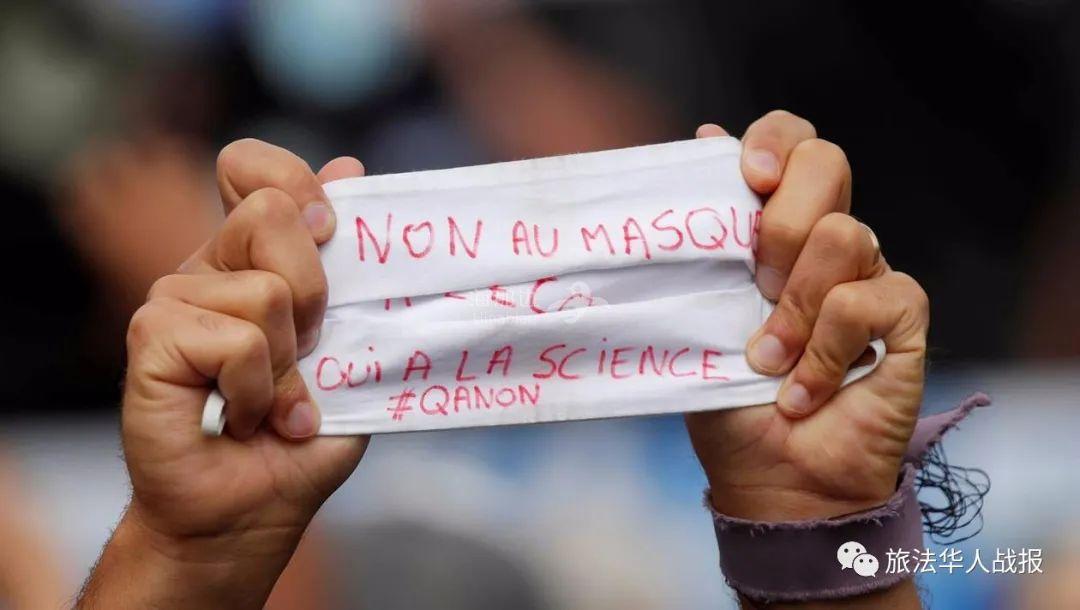 NON AU MASQUE
OUI A LA SCIENCE
#QANON
旅法华人战报